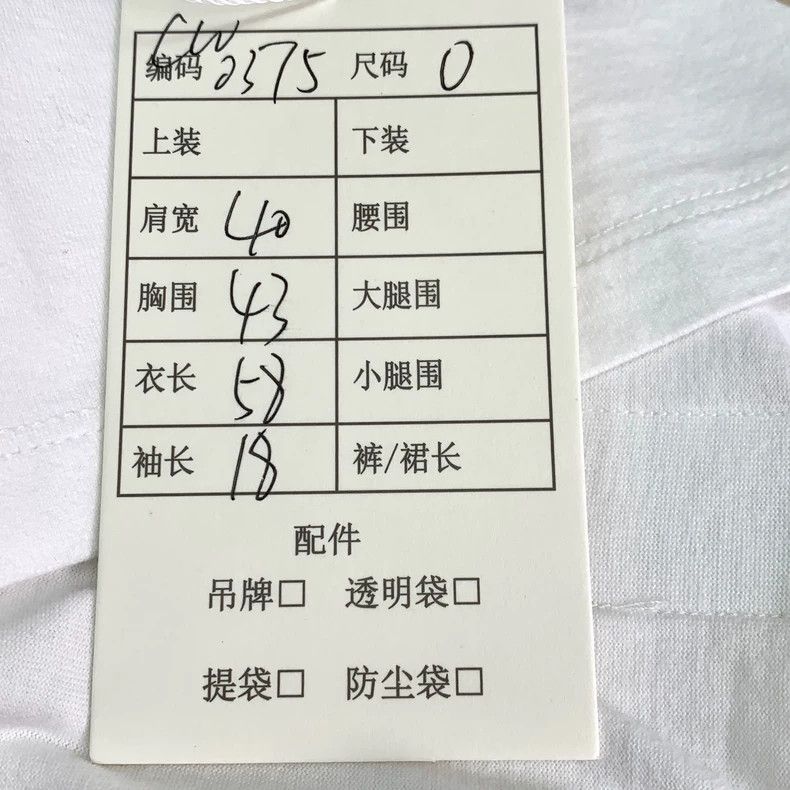 CW
编码 0375 尺码 0
上装 下装
肩宽 40 腰围
胸围 43 大腿围
衣长 58 小腿围
袖长 18 裤/裙长
配件
吊牌□ 透明袋□
提袋□ 防尘袋□